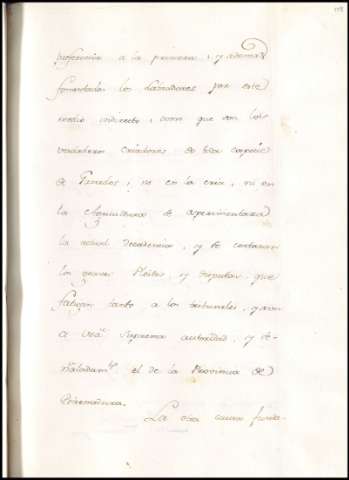 preferencia a la primera, y ademas
fomentados los Labradores por este
medio indirecto, como que son los
verdaderos criadores de esta especie
de Ganados, no en la cria, ni en
la Agricultura se experimentará
la actual decadencia, y se cortaran
los graves Pleitos, y disputas, que
fatigan tanto a los tribunales, y aun
a vra. suprema autoridad, y se-
ñaladamte. el de la Provincia de
Extremadura.
La otra causa funda-